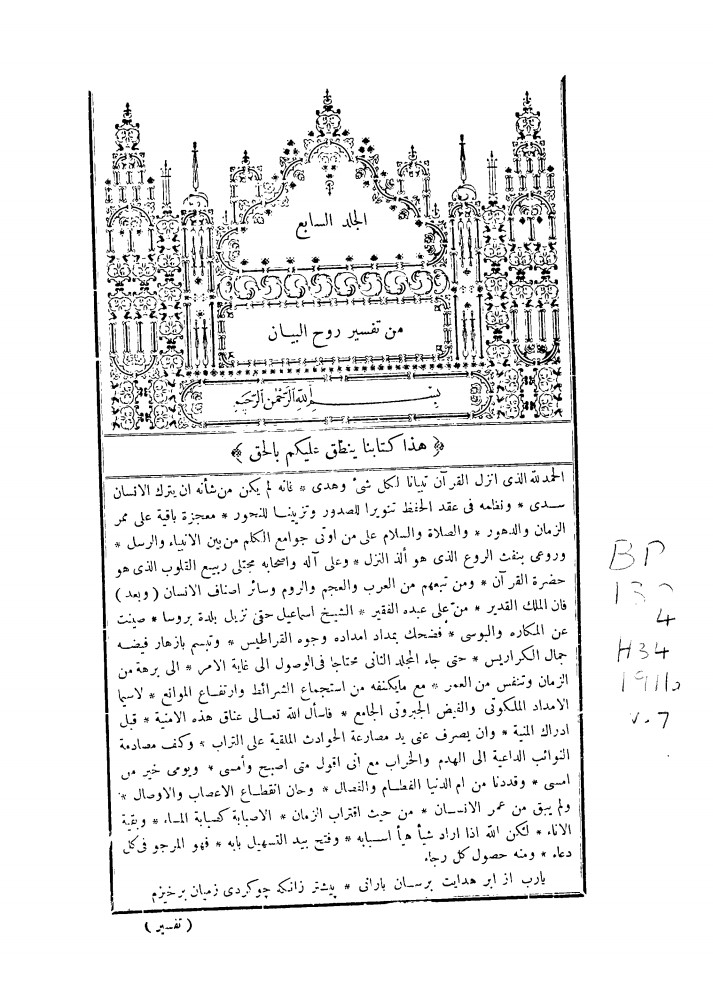 الجلد السابع
من تفسير روح البيان
بسم الله الرحمن الرحيم
﴿ هذا كتابنا ينطق عليكم بالحق ﴾
الحمد لله الذى انزل القرآن تبيانا لكل شئ وهدى * فانه لم يكن من شأنه ان يترك الانسان
سدى * ونظمه فى عقد الحفظ تنويرا للصدور وتزيينا للنحور * معجزة باقية على ممر
الزمان والدهور * والصلاة والسلام على من اوتى جوامع الكلم من بين الانبياء والرسل *
وروعى بنفث الروع الذى هو ألذ النزل * وعلى آله واصحابه مجتلى ربيع القلوب الذى هو
حضرة القرآن * ومن تبعهم من العرب والعجم والروم وسائر اصناف الانسان ( وبعد )
فان الملك القدير * منّ على عبده الفقير * الشيخ اسماعيل حقى نزيل بلدة بروسا * صينت
عن المكاره والبوسى * فضحك بمداد امداده وجوه القراطيس * وتبسم بازهار فيضه
جمال الكراريس * حتى جاء المجلد الثانى محتاجا فى الوصول الى غاية الامر * الى برهة من
الزمان وتنفس من العمر * مع مايكنفه من استجماع الشرائط وارتفاع الموانع * لاسيما
الامداد الملكوتى والفيض الجبروتى الجامع * فاسأل الله تعالى عناق هذه الامنية * قبل
ادراك المنية * وان يصرف عنى يد مصارعة الحوادث الملقية على التراب * وكف مصادمة
النوائب الداعية الى الهدم والخراب مع انى اقول متى اصبح وأمسى * ويومى خير من
امسى * وقددنا من ام الدنيا الفطام والفصال * وحان انقطاع الاعصاب والاوصال *
ولم يبق من عمر الانسان * من حيث اقتراب الزمان * الاصبابة كصبابة الماء * وبقية
الاناء * لكن الله اذا اراد شيأ هيأ اسبابه * وفتح بيد التسهيل بابه * فهو المرجو فى كل
دعاء * ومنه حصول كل رجاء
يارب از ابر هدايت برسان بارانى * پيشتر زانكه چو كردى زميان برخيزم
( تفسير )
BP
130
4
H34
1911
v. 7